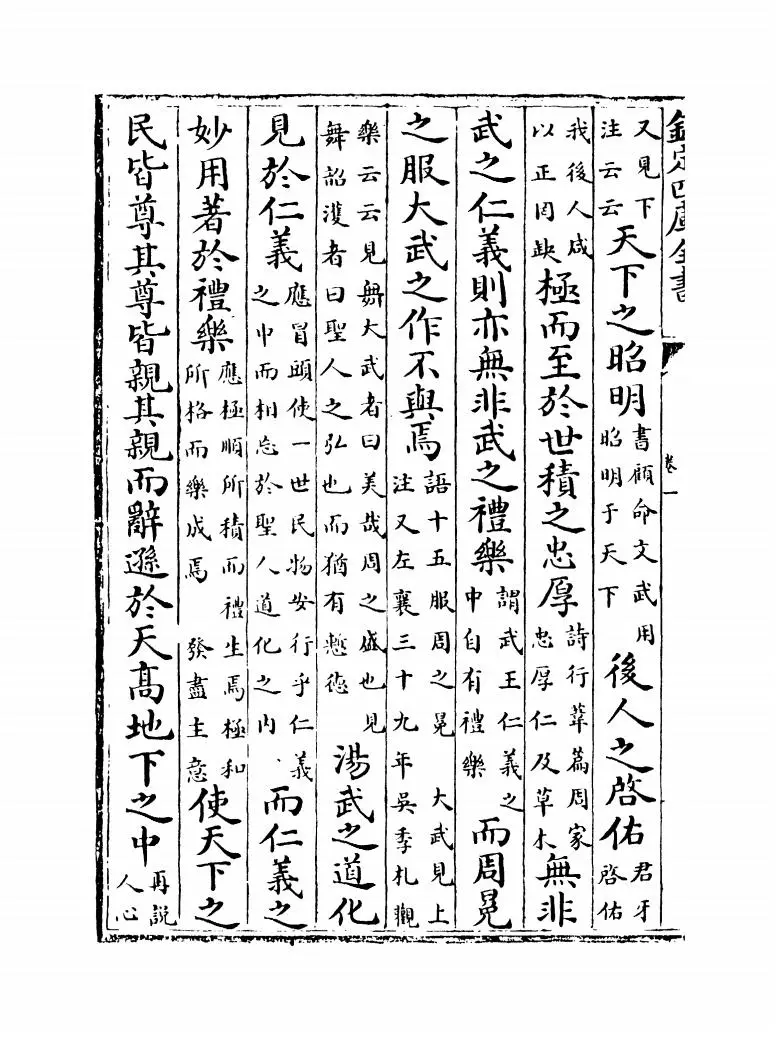 欽定四庫全書 卷一
又見下注云云天下之昭明書顧命文武用昭明于天下後人之啓佑君牙啓佑
我後人咸以正罔缺極而至於世積之忠厚詩行葦篇周家忠厚仁及草木無非
武之仁義則亦無非武之禮樂謂武王仁義之中自有禮樂而周冕
之服大武之作不與焉語十五服周之冕 大武見上注又左襄三十九年吳季札觀
樂云云見舞大武者曰美哉周之盛也見舞韶濩者曰聖人之弘也而猶有慙徳湯武之道化
見於仁義應冒頭使一世民物安行乎仁義之中而相忘於聖人道化之内而仁義之
妙用著於禮樂應極順所積而禮生焉極和所格而樂成焉 發盡主意使天下之
民皆尊其尊皆親其親而辭遜於天髙地下之中再説人心